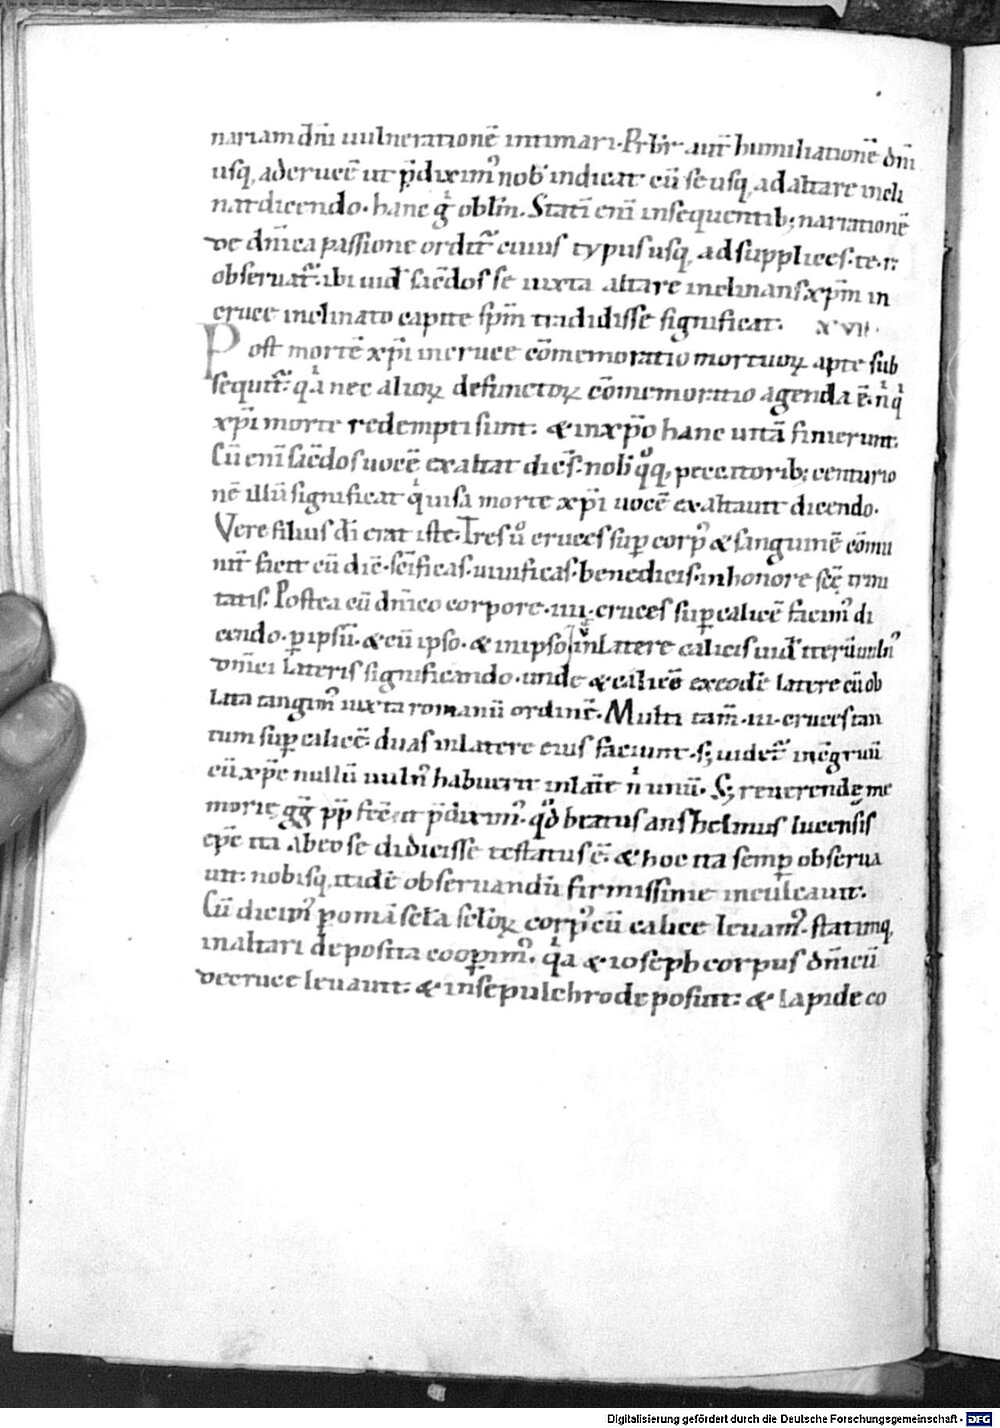 nariam dn̄i uulnerationē intimari. Prb̄r aut̄ humiliationē dn̄i
usq, ad crucē ut p̄dixim᾿ nob̄ indicat cū se usq, ad altare incli
nat dicendo. hanc gͥ oblōn. Statī enī insequentib; narrationē
de dn̄ica passione ordit᷑ cuius typus usq, ad supplices. te. r:
obseruat᷑. ibi uid᷑ sac̄dos se iuxta altare inclinans xp̄m in
cruce inclinato capite sp̄m tradidisse significat. xvii.
Post mortē xp̄i in cruce cōmemoratio mortuoꝝ apte sub
sequit᷑. qͣa nec alioꝝ defunctoꝝ cōmemoratio agenda ē. nͥ qͥ
xp̄i morte redempti sunt. & in xp̄o hanc uitā finierunt.
Cū enī sac̄dos uocē exaltat dicēs. nob̄ qͦq, peccatorib; centurio
nē illū significat qͥ uisa morte xp̄i uocē exaltauit dicendo.
Vere filius dī erat iste. Tres uͦ cruces sup̱ corp᾿ & sanguinē cōmu
nit̄ facit cū diē. sc̄ificas. uiuificas. benedicis. in honore sc̄ę trini
tatis. Postea cū dn̄ico corpore. iiii. cruces sup̱ calicē facim᾿ di
cendo. p̱ ipsū. & cū ipso. & in ipso. v̄ in latere calicis uid᷑ iterū uuln᾿
dn̄ici lateris significando. unde & calicē ex eodē latere cū ob
lata tangim᾿ iuxta romanū ordinē. Multi tam̄. iii. cruces tan
tum sup̱ calicē. duas in latere eius faciunt. S; uidet᷑ incōgruū
cū xp̄c nullū uuln᾿ habuerit in lat̄e nͥ unū. S; reuerendę me
morię gḡ pp̄ fec̄ ut p̄dixim᾿. qd̄ beatus anshelmus lucensis
ep̄c ita ab eo se didicisse testatus ē. & hoc ita semp̱ obserua
uit: nobisq, itidē obseruandū firmissime inculcauit.
Cū dicim᾿ p̱ om̄ia sc̄la sc̄loꝝ corp᾿ cū calice leuam᾿. statimq,
in altari deposita coop̱im᾿. qͣa & ioseph corpus dn̄icū
de cruce leuauit: & in sepulchro deposuit: & lapide co